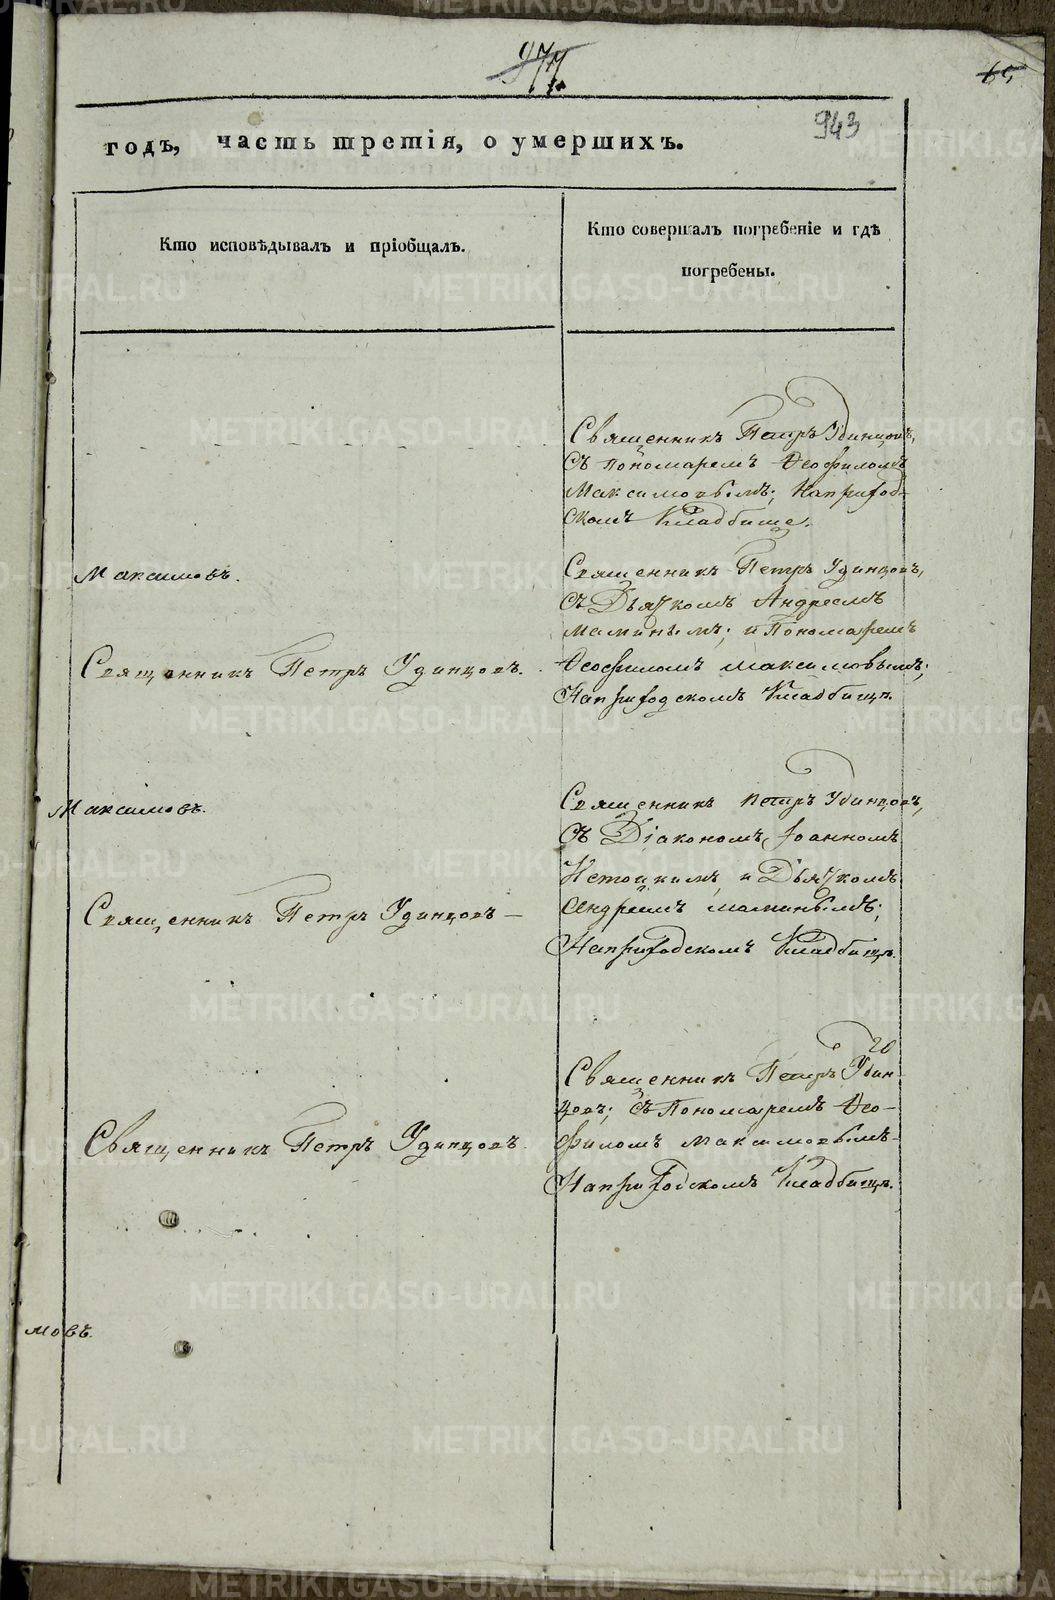 977.
65
943
годъ, часть третія, о умершихъ.
Кто исповѣдывалъ и пріобщалъ.
Кто совершалъ погребеніе и гдѣ
погребены.
Священникъ Петръ Удинцовъ,
съ Пономаремъ Ѳеофиломъ
Максимовымъ; На приход-
скомъ Кладбище.
Максимовъ.
Священникъ Петръ Удинцовъ.
Священникъ Петръ Удинцовъ,
съ Дьячкомъ Андреемъ
Маминымъ; и Пономаремъ
Ѳеофиломъ Максимовымъ;
На приходскомъ Кладбищѣ.
Максимовъ.
Священникъ Петръ Удинцовъ —
Священникъ Петръ Удинцовъ,
съ Діакономъ Іоанномъ
и Дьячкомъ
Андреемъ Маминымъ;
На приходскомъ Кладбищѣ.
Священникъ Петръ Удинцовъ.
20
Священникъ Петръ Удин-
цовъ; съ Пономаремъ Ѳео-
филомъ Максимовымъ
На приходскомъ Кладбищѣ.
мовъ.
METRIKI.GASO-URAL.RU